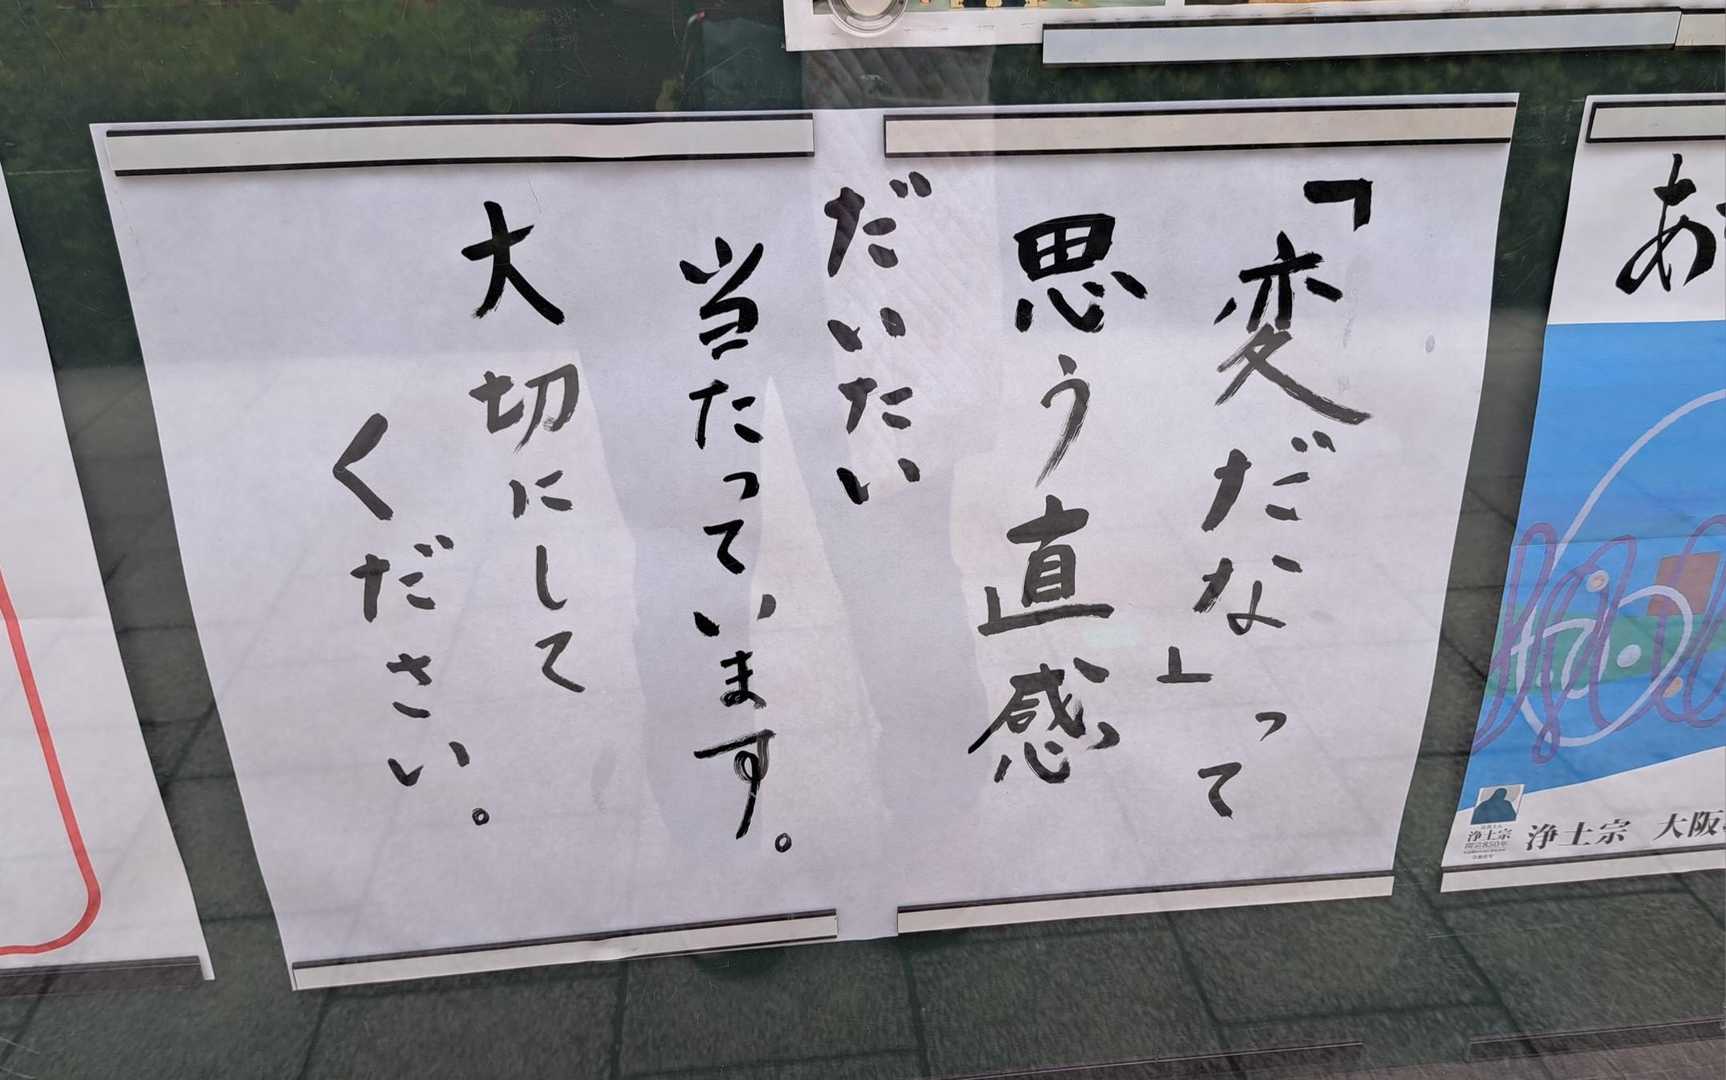 「変だな」って
思う直感
だいたい
当たっています。
大切にして
ください。
あ
浄土宗
開宗850年
浄土宗 大阪